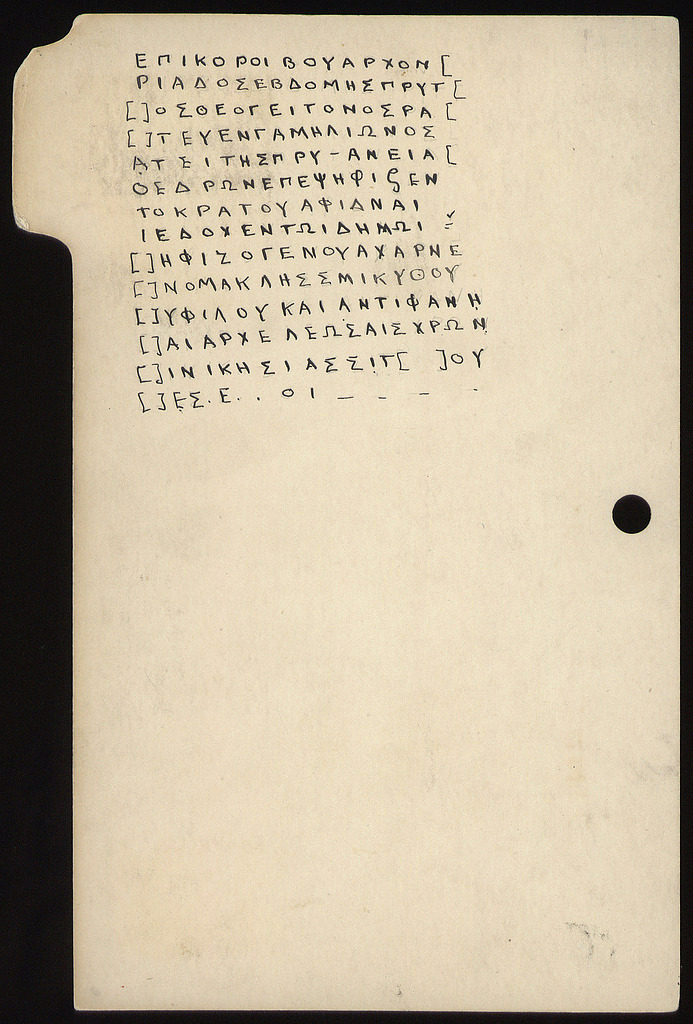 ΕΠΙΚΟΡΟΙΒΟΥΑΡΧΟΝ[
ΡΙΑΔΟΣΕΒΔΟΜΗΣΠΡΥΤ[
[]ΟΣΘΕΟΓΕΙΤΟΝΟΣΡΑ[
[]ΤΕΥΕΝΓΑΜΗΛΙΩΝΟΣ
ΑΤΕΙΤΗΣΠΡΥ-ΑΝΕΙΑ[
ΟΕΔΡΩΝΕΠΕΨΗΦΙζΕΝ
ΤΟΚΡΑΤΟΥΑΦΙΔΝΑΙ
ΙΕΔΟΧΕΝΤΩΙΔΗΜΩΙ
[]ΗΦΙΣΟΓΕΝΟΥΑΧΑΡΝΕ
[]ΝΟΜΑΚΛΗΣΣΜΙΚΥΘΟΥ
[]ΥΦΙΛΟΥΚΑΙΑΝΤΙΦΑΝΗ
[]ΑΙΑΡΧΕΛΕΩΣΑΙΣΧΡΩΝ
[]ΙΝΙΚΗΣΙΑΣΣΙΤ[ ]ΟΥ
[]ΕΣ.Ε..ΟΙ _ _ _ .